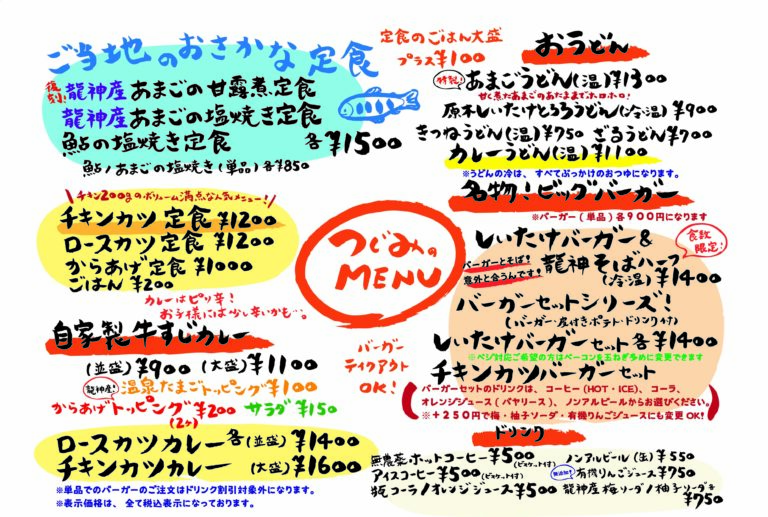 ご当地のおさかな定食
復刻!
龍神産あまごの甘露煮定食
龍神産あまごの塩焼き定食
鮎の塩焼き定食 各¥1500
鮎/あまごの塩焼き(単品)各¥850
定食のごはん大盛
プラス¥100
チキン200gのボリューム満点な人気メニュー!
チキンカツ定食¥1200
ロースカツ定食¥1200
からあげ定食¥1000
ごはん¥200
カレーはピリ辛!
お子様には少し辛いかも…
自家製牛すじカレー
(並盛)¥900 (大盛)¥1100
龍神産!
温泉たまごトッピング¥100
からあげトッピング¥200 サラダ¥150
(2ケ)
ロースカツカレー各(並盛)¥1400
チキンカツカレー (大盛)¥1600
※単品でのバーガーのご注文はドリンク割引対象外になります。
※表示価格は、全て税込表示になっております。
つじみの
MENU
バーガー
テイクアウト
OK!
おうどん
特製!
あまごうどん(温)¥1300
甘く煮たあまごのあたままでホロホロ!
原木しいたけとろろうどん(冷・温)¥900
きつねうどん(温)¥750 ざるうどん¥700
カレーうどん(温)¥1100
※うどんの冷は、すべてぶっかけのおつゆになります。
名物!ビッグバーガー
※バーガー(単品)各900円になります
しいたけバーガー&
食数限定!
バーガーとそば?
意外と合うんです!
龍神そばハーフ
(冷・温)¥1400
バーガーセットシリーズ!
(バーガー・皮付きポテト・ドリンク付)
しいたけバーガーセット 各¥1400
※ベジ対応ご希望の方はベーコンを玉ねぎ多めに変更できます
チキンカツバーガーセット
バーガーセットのドリンクは、コーヒー(HOT・ICE)、コーラ、
オレンジジュース(バヤリース)、ノンアルビールからお選びください。
※+250円で梅・柚子ソーダ・有機りんごジュースにも変更OK!
ドリンク
無農薬ホットコーヒー¥500(ビスケット付) ノンアルビール(缶)¥550
アイスコーヒー¥500(ビスケット付) 無添加!有機りんごジュース¥750
瓶コーラ/オレンジジュース¥500 龍神産梅ソーダ/柚子ソーダ各
¥750